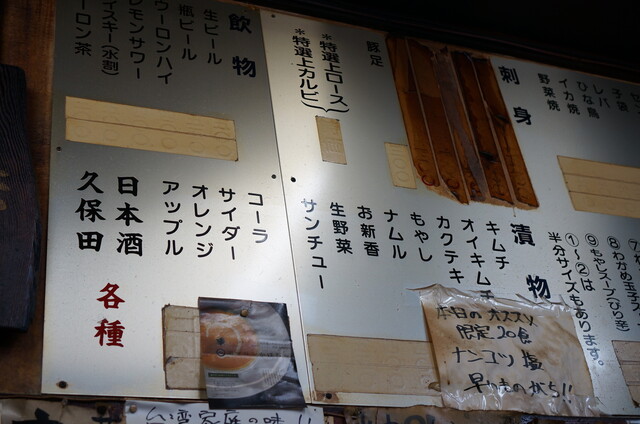 子袋
レバー
ひな鳥
イカ焼
野菜焼
刺身
豚足
＊特選上ロース
＊特選上カルビ
飲物
生ビール
瓶ビール
ウーロンハイ
レモンサワー
イスキー(水割)
ーロン茶
⑦
⑧わかめ玉子ス
⑨もやスープ(ピリ辛)
①～②は
半分サイズもあります。
漬物
キムチ
オイキムチ
カクテキ
もやし
ナムル
お新香
生野菜
サンチュー
コーラ
サイダー
オレンジ
アップル
日本酒
久保田
各種
本日のオススメ
限定20食
ナンコツ塩
早いものがち!!
台湾家庭の味!!